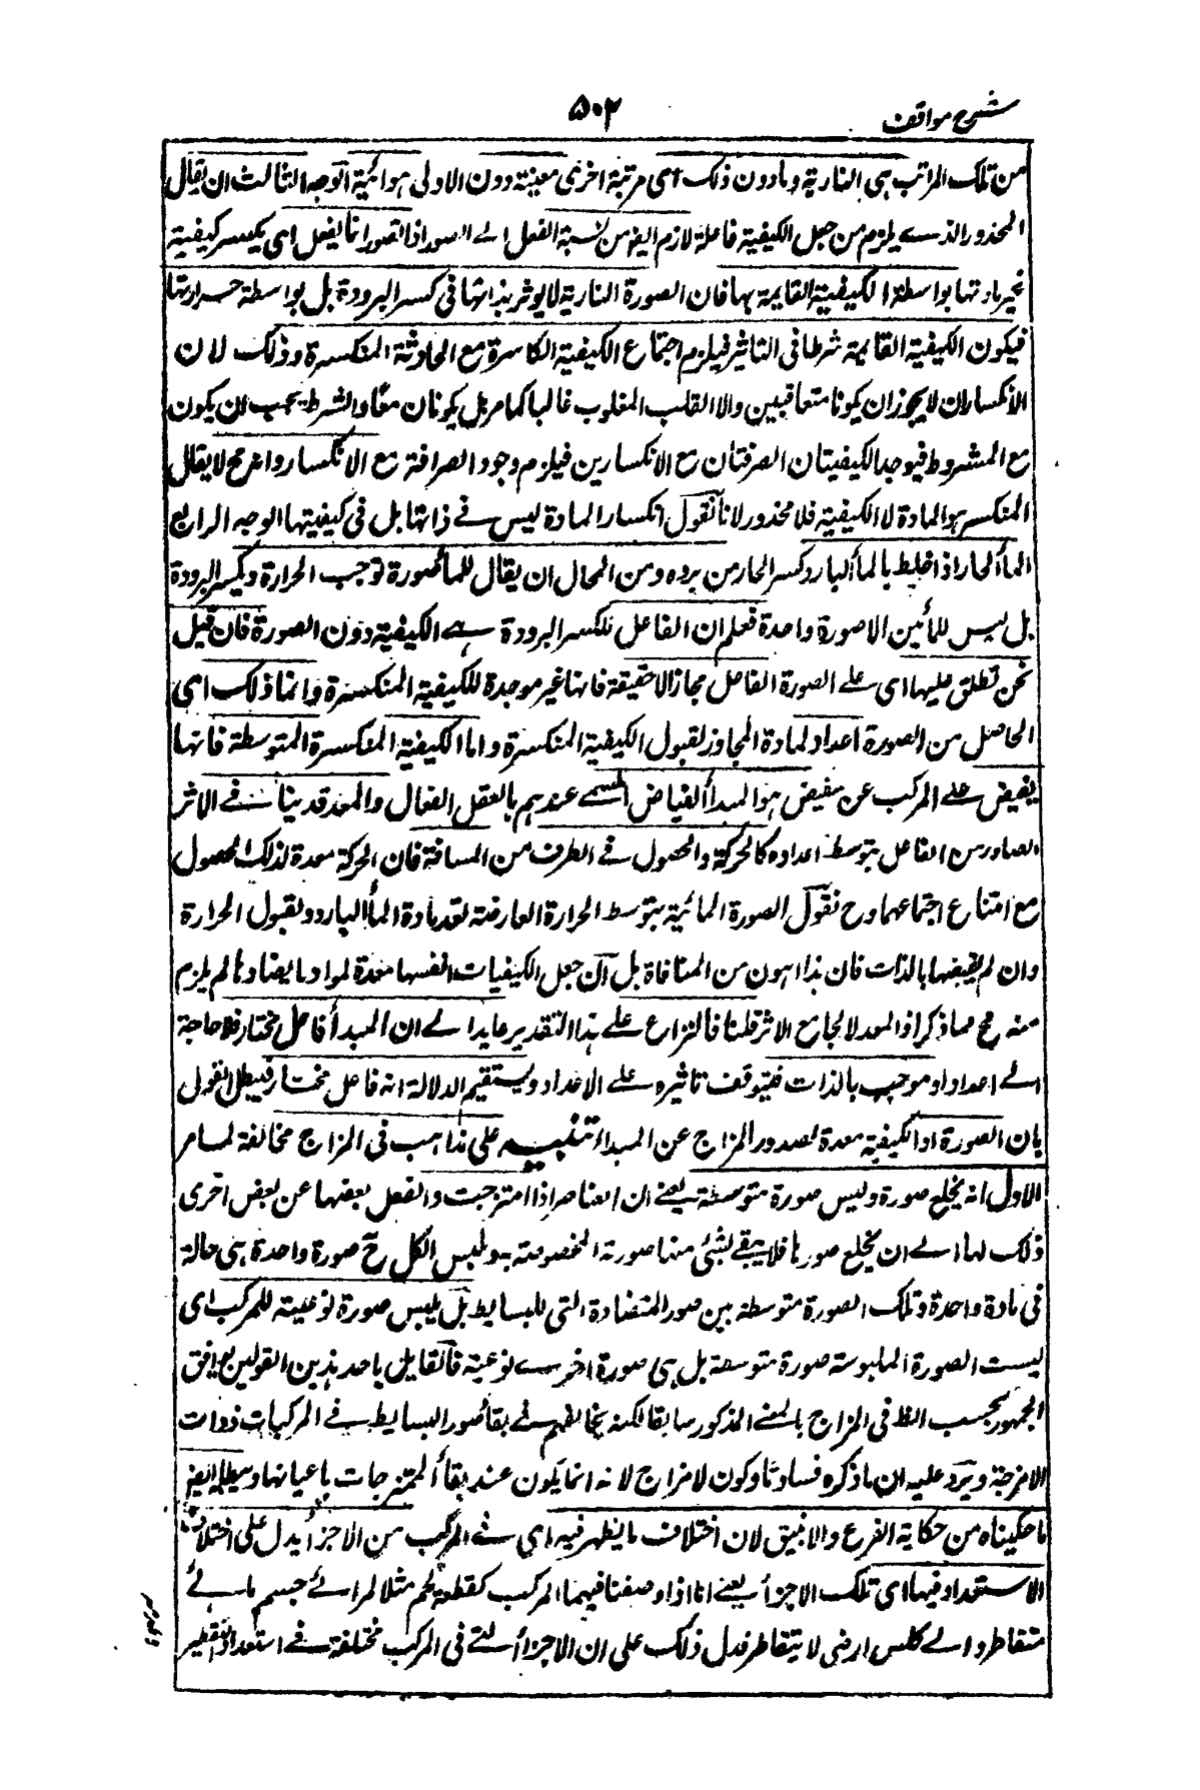 شرح مواقف
۵۰۲
من تلك المراتب هي النارية وما دون ذلك اى مرتبة اخرى معينة دون الاولى هوائية الوجه الثالث ان يقال
المحذور الذے يلزم من جعل الكيفية فاعلة لازم اليض من نسبة الفعل الے الصور اذ الصور انما يفعل اى يكسر كيفية
غير مادتها بواسطة الكيفية القايمة بها فان الصورة النارية لا يوثر بذاتها فى كسر البرودة بل بواسطة حرارتها
فيكون الكيفية القايمة شرطا فى التاثير فيلزم اجتماع الكيفية الكاسرة مع الحادثة المنكسرة وذلك لان
الانكساران لا يجوز ان يكونا متعاقبين والا انقلب المغلوب غالبا كما مر بل يكونان معًا والشرط يجب ان يكون
مع المشروط فيوجد الكيفيتان الصرفتان مع الانكسارين فيلزم وجود الصرافة مع الانكسار وانه مح لا يقال
المنكسر هو المادة لا الكيفية فلا محذور لانا نقول انكسار المادة ليس فے ذاتها بل فى كيفيتها الوجه الرابع
الماء الحار اذا خلط بالماء البارد كسر الحار من برده ومن المحال ان يقال للماء صورة توجب الحرارة وكيسر البرودة
بل ليس للمائين الا صورة واحدة فعلم ان الفاعل للكسر البرودة هے الكيفية دون الصورة فان قيل
نحن نطلق عليها اى علے الصورة الفاعل مجازا لا حقيقة فانها غير موجدة للكيفية المنكسرة وانما ذلك اى
الحاصل من الصورة اعداد لمادة المجاوز لقبول الكيفية المنكسرة واما الكيفية المنكسرة المتوسطة فانها
يفيض علے المركب عن مفيض هو المبدأ الفياض المسمے عندهم بالعقل الفعال والمعد قد ينافے الاثر
الصادر من الفاعل بتوسط اعداده كالحركة والحصول فے الطرف من المسافة فان الحركة معدة لذلك الحصول
مع امتناع اجتماعهما وح نقول الصورة المائية بتوسط الحرارة العارضة تعد مادة الماء البارد ولقبول الحرارة
وان لم يفيضها بالذات فان هذا اهون من المنافاة بل ان جعل الكيفيات انفسها معدة لمواد ما يضادها لم يلزم
منه مح مما ذكر اذ المعد لا يجامع الاثر قلنا فالنزاع علے هذا التقدير عايد الے ان المبدأ فاعل مختار فلا حاجة
الے اعداد او موجب بالذات فيتوقف تاثيره علے الاعداد ويستقيم الدلالة انه فاعل مختار فيبطل القول
بان الصورة او الكيفية معدة لصدور المزاج عن المبداء تنبيه على مذاهب فى المزاج مخالفة لما مر
الاول انه يخلع صورة وليس صورة متوسطة يعنے ان العناصر اذا امتزجت وانفعل بعضها عن بعض ادى
ذلك لها الے ان يخلع صورها فلا يبقے لشئ منها صورته المخصوصة به ويلبس الكل ح صورة واحدة هى حالة
فى مادة واحدة وتلك الصورة متوسطة بين صور المتضادة التى للبسايط بل يلبس صورة نوعية للمركب اى
ليست الصورة الملبوسة صورة متوسطة بل هى صورة اخرے نوعية فالقايل باحد هذين القولين يوافق
الجمهور بحسب الظ فى المزاج بالمعنے المذكور سابقا لكنه يخالفهم فے بقاء صور البسايط فے المركبات ذوات
الامزجة ويرد عليه ان ما ذكره فساد ما وكون لا مزاج لانه انما يكون عند بقاء الممتزجات باعيانها ويبطله ايض
ما حكيناه من حكاية القرع والانبيق لان اختلاف ما يظهر فيه اى فے المركب من الاجزاء يدل على اختلاف
الاستعداد فيها اى تلك الاجزاء يعنے انا اذا وضعنا فيهما المركب كقطعة لحم مثلا تميز الے جسم مائے
متقاطر والے كلس ارضى لا يتقاطر فدل ذلك على ان الاجزاء التے فى المركب مختلفة فے استعداد التقطير